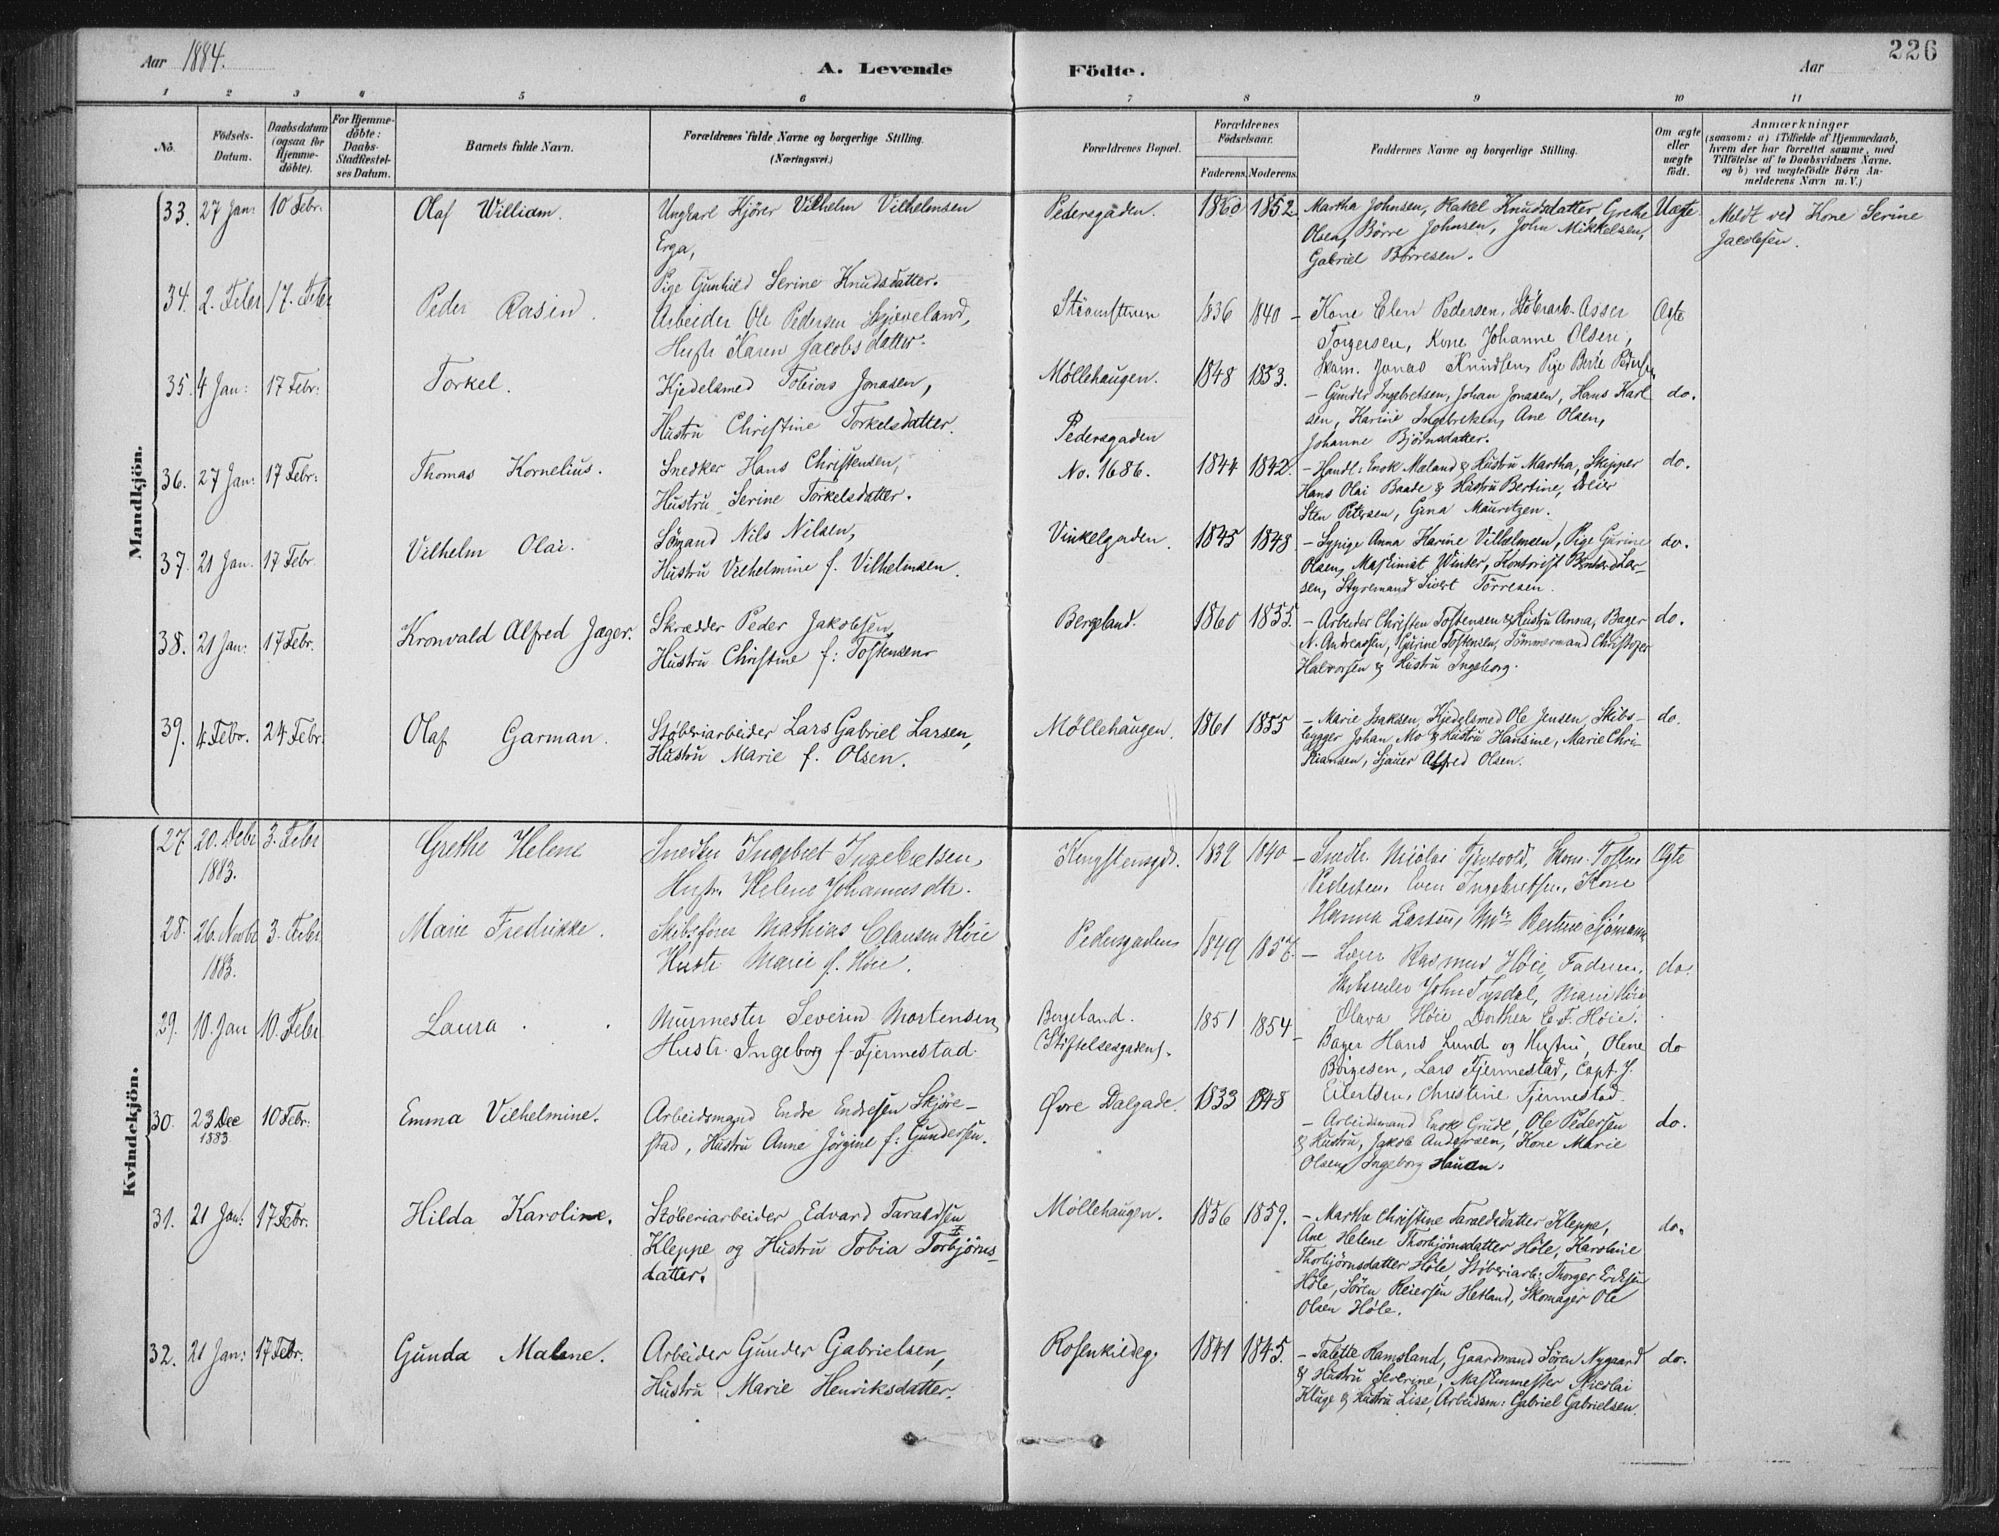 Aar 1884.
A. Levende
Födte.
Aar
226
1 2 3 4 5 6 7 8 9 10 11
No.
Födsels-
Datum.
Daabsdatum
(ogsaa for
Hjemme-
döbte).
For Hjemme-
döbte:
Daabs-
Stadfæstel-
ses Datum.
Barnets fulde Navn.
Forældrenes fulde Navne og borgerlige Stilling.
(Næringsvei.)
Forældrenes Bopæl.
Forældrenes
Födselsaar.
Faderens. Moderens.
Faddernes Navne og borgerlige Stilling.
Om ægte
eller
uægte
födt.
Anmærkninger
(saasom: a) i Tilfælde af Hjemmedaab,
hvem der har forrettet samme, med
Tilföielse af to Daabsvidners Navne.
og b) ved uægtefödte Börn An-
melderens Navn m. V.)
Mandkjön.
33. 27 Jan: 10 Febr. Olaf William.
Ungkarl Kjører Vilhelm Vilhelmsen
Erga,
Pige Gunhild Serine Knudsdatter.
Pedersgaden. 1860 1852.
Martha Johnsen, Rakel Knudsdatter Grethe
Olsen, Børre Johnsen, John Mikkelsen,
Gabriel Børresen.
Uægte.
Meldt ved Kone Serine
Jacobsen.
34. 2. Febr 17. Febr Peder Rasin.
Arbeider Ole Pedersen Skjeveland,
Hustr Karen Jacobsdatter.
Strømstenen 1836 1840
– Kone Elen Pedersen, Støberarb. Asser
Torgersen, Kone Johanne Olsen,
Skom. Jonas Knudsen, Pige Berte Pedersen
Ægte
35. 4 Jan: 17 Febr: Torkel.
Kjedelsmed Tobias Jonasen,
Hustru Christine Torkelsdatter.
Møllehaugen. 1848 1853.
– Gunder Ingebretsen, Johan Jonasen, Hans Karl
sen, Karine Ingebretsen, Ane Olsen,
Johanne Bjørnsdatter.
do.
36. 27 Jan: 17 Febr: Thomas Kornelius.
Snedker Hans Christensen,
Hustru Serine Torkelsdatter.
Pedersgaden
No. 1686. 1844 1842.
– Handl: Enok Maland & Hustru Martha, Skipper
Hans Olai Baade & Hustru Bertine,
Sten Petersen, Gina Mauritzen.
do.
37. 21 Jan. 17 Febr. Vilhelm Olai.
Sømand Nils Nilsen,
Hustru Vilhelmine f. Vilhelmsen.
Vinkelgaden. 1845 1848
– Sypige Anna Karine Vilhelmsen, Pige Gurine
Olsen, Maskinist Winter, Kontorist Berntsen Lar-
sen, Styremand Sivert Tørresen.
do.
38. 21 Jan: 17 Febr. Kronvald Alfred Jæger.
Skrædder Peder Jakobsen,
Hustru Christine f: Tostensen
Bergeland. 1860 1855.
– Arbeider Christen Tostensen & Hustru Anna, Bager
N. Andreassen, Gurine Tostensen, Tømmermand Christofer
Halvorsen & Hustru Ingeborg.
do.
39. 4. Febr. 24 Febr. Olaf Garman.
Støberiarbeider Lars Gabriel Larsen,
Hustru Marie f. Olsen.
Møllehaugen. 1861 1855
– Marie Isaksen, Kjedelsmed Ole Jensen, Skibs-
bygger Johan Mo & Hustru Hansine, Marie Chri-
stiansen, Sjauer Alfred Olsen.
do.
Kvindekjön.
27 20. Decbr 3. Febr Grethe Helene
1883.
Snedker Ingebret Ingebretsen,
Hustr. Helene Johannesdtr.
Kongstensgd. 1839 1840
– Snedkr. Nicolai Tjentvold, Skom. Tosten
Pedersen, Even Ingebretsen, Kone
Hanna Larsen, Bertine Sjømann
Ægte
28. 26. Novbr 3. Febr Marie Fredrikke.
1883.
Skibsfører Mathias Clausen Høie
Hustr. Marie f. Høie.
Pedersgaden 1849 1857.
– Lærer Rasmus Høie, Faderen,
John Tysdal, Marie Høie
Olava Høie Dorthea C. F. Høie.
do.
29. 10. Jan 10. Febr Laura.
Murmester Severin Mortensen
Hustr. Ingeborg f. Fjermestad.
Bergeland.
(Stiftelsesgaden). 1851 1854
– Bager Hans Lund og Hustru, Olene
Børgesen, Lars Fjermestad, Capt. J.
Eilertsen, Christine Fjermestad.
do
30. 23 Dec 10 Febr: Emma Vilhelmine.
1883
Arbeidsmand Endre Endresen Skjøre-
stad, Hustru Anne Jörgine f: Gundersen.
Øvre Dalgade. 1833 1848
– Arbeidsmand Enok Grude, Ole Pedersen
& Hustru, Jakob Andersen, Kone Marie
Olsen, Ingeborg Hauan.
do.
31. 21 Jan: 17 Febr. Hilda Karoline.
Støberiarbeider Edvard Taraldsen
Kleppe og Hustru Tobia Torbjörns-
datter.
Møllehaugen. 1856 1859.
– Martha Christine Taraldsdatter Kleppe,
Ane Helene Thorbjørnsdatter Høle, Karoline
Thorbjørnsdatter Høle, Støberiarb: Thorger Eriksen
Høle, Søren Reiersen Hetland, Skomager Ole
Olsen Høle.
do.
32. 21 Jan: 17 Febr. Gunda Malene.
Arbeider Gunder Gabrielsen,
Hustru Marie Henriksdatter.
Rosenkildeg. 1841 1845.
– Talette Ramsland, Gaardmand Søren Nygaard
& Hustru Severine, Maskinmester Nicolai
Kluge & Hustru Lise, Arbeidsm: Gabriel Gabrielsen.
do.